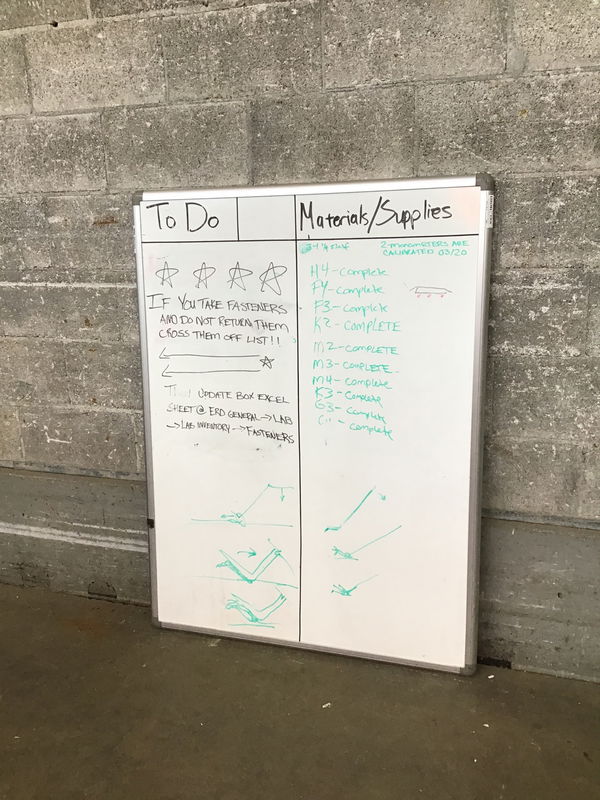 To Do
IF YOU TAKE FASTENERS
AND DO NOT RETURN THEM
CROSS THEM OFF LIST!!
UPDATE BOX EXCEL
SHEET @ ERD GENERAL → LAB
→ LAB INVENTORY → FASTENERS
Materials/Supplies
2-MANOMETERS ARE
CALIBRATED 03/20
H4-complete
F4-complete
F3-complete
K2-COMPLETE
M2-COMPLETE
M3-COMPLETE
M4-complete
K3-complete
G3-complete
- complete